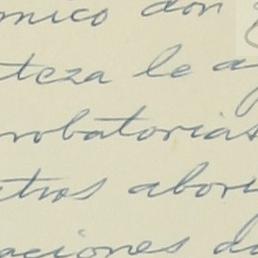 mico don
teza le a
robatorias
tros abori
aciones do